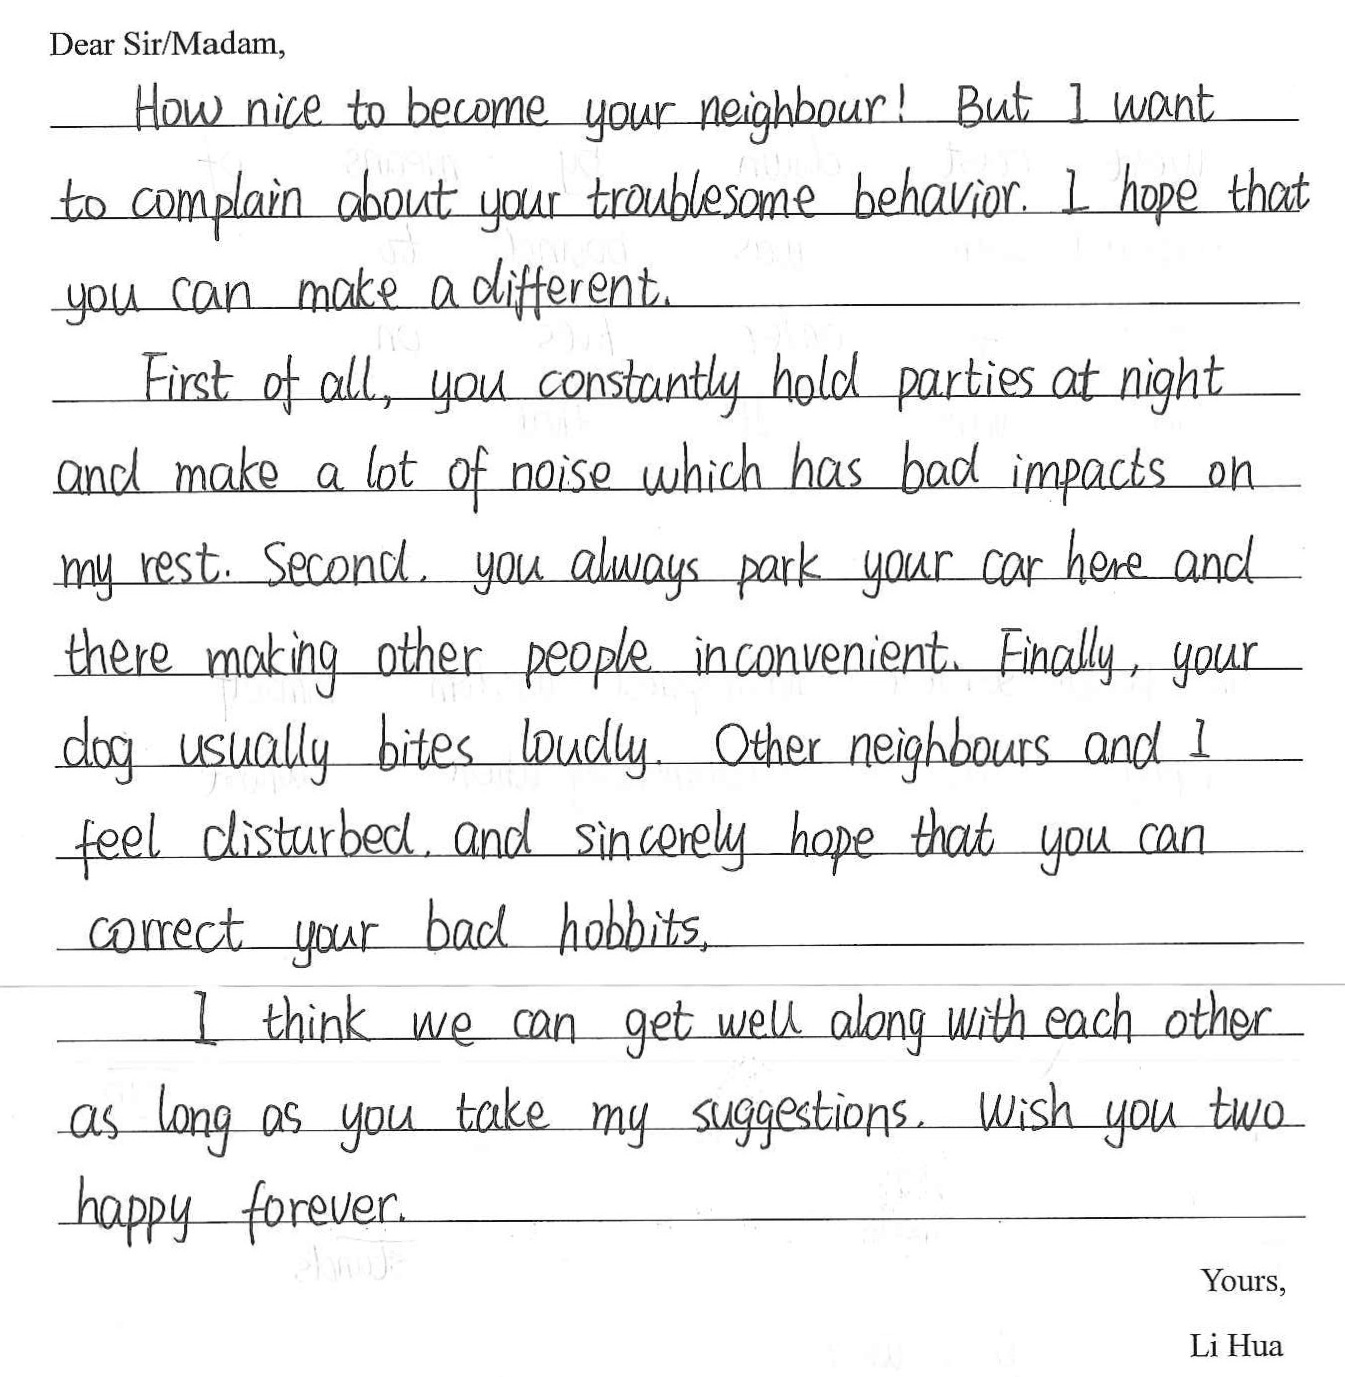 Dear Sir/Madam,
How nice to become your neighbour! But I want
to complain about your troublesome behavior. I hope that
you can make a different.
First of all, you constantly hold parties at night
and make a lot of noise which has bad impacts on
my rest. Second, you always park your car here and
there making other people inconvenient. Finally, your
dog usually bites loudly. Other neighbours and I
feel disturbed, and sincerely hope that you can
correct your bad hobbits.
I think we can get well along with each other
as long as you take my suggestions. Wish you two
happy forever.
Yours,
Li Hua